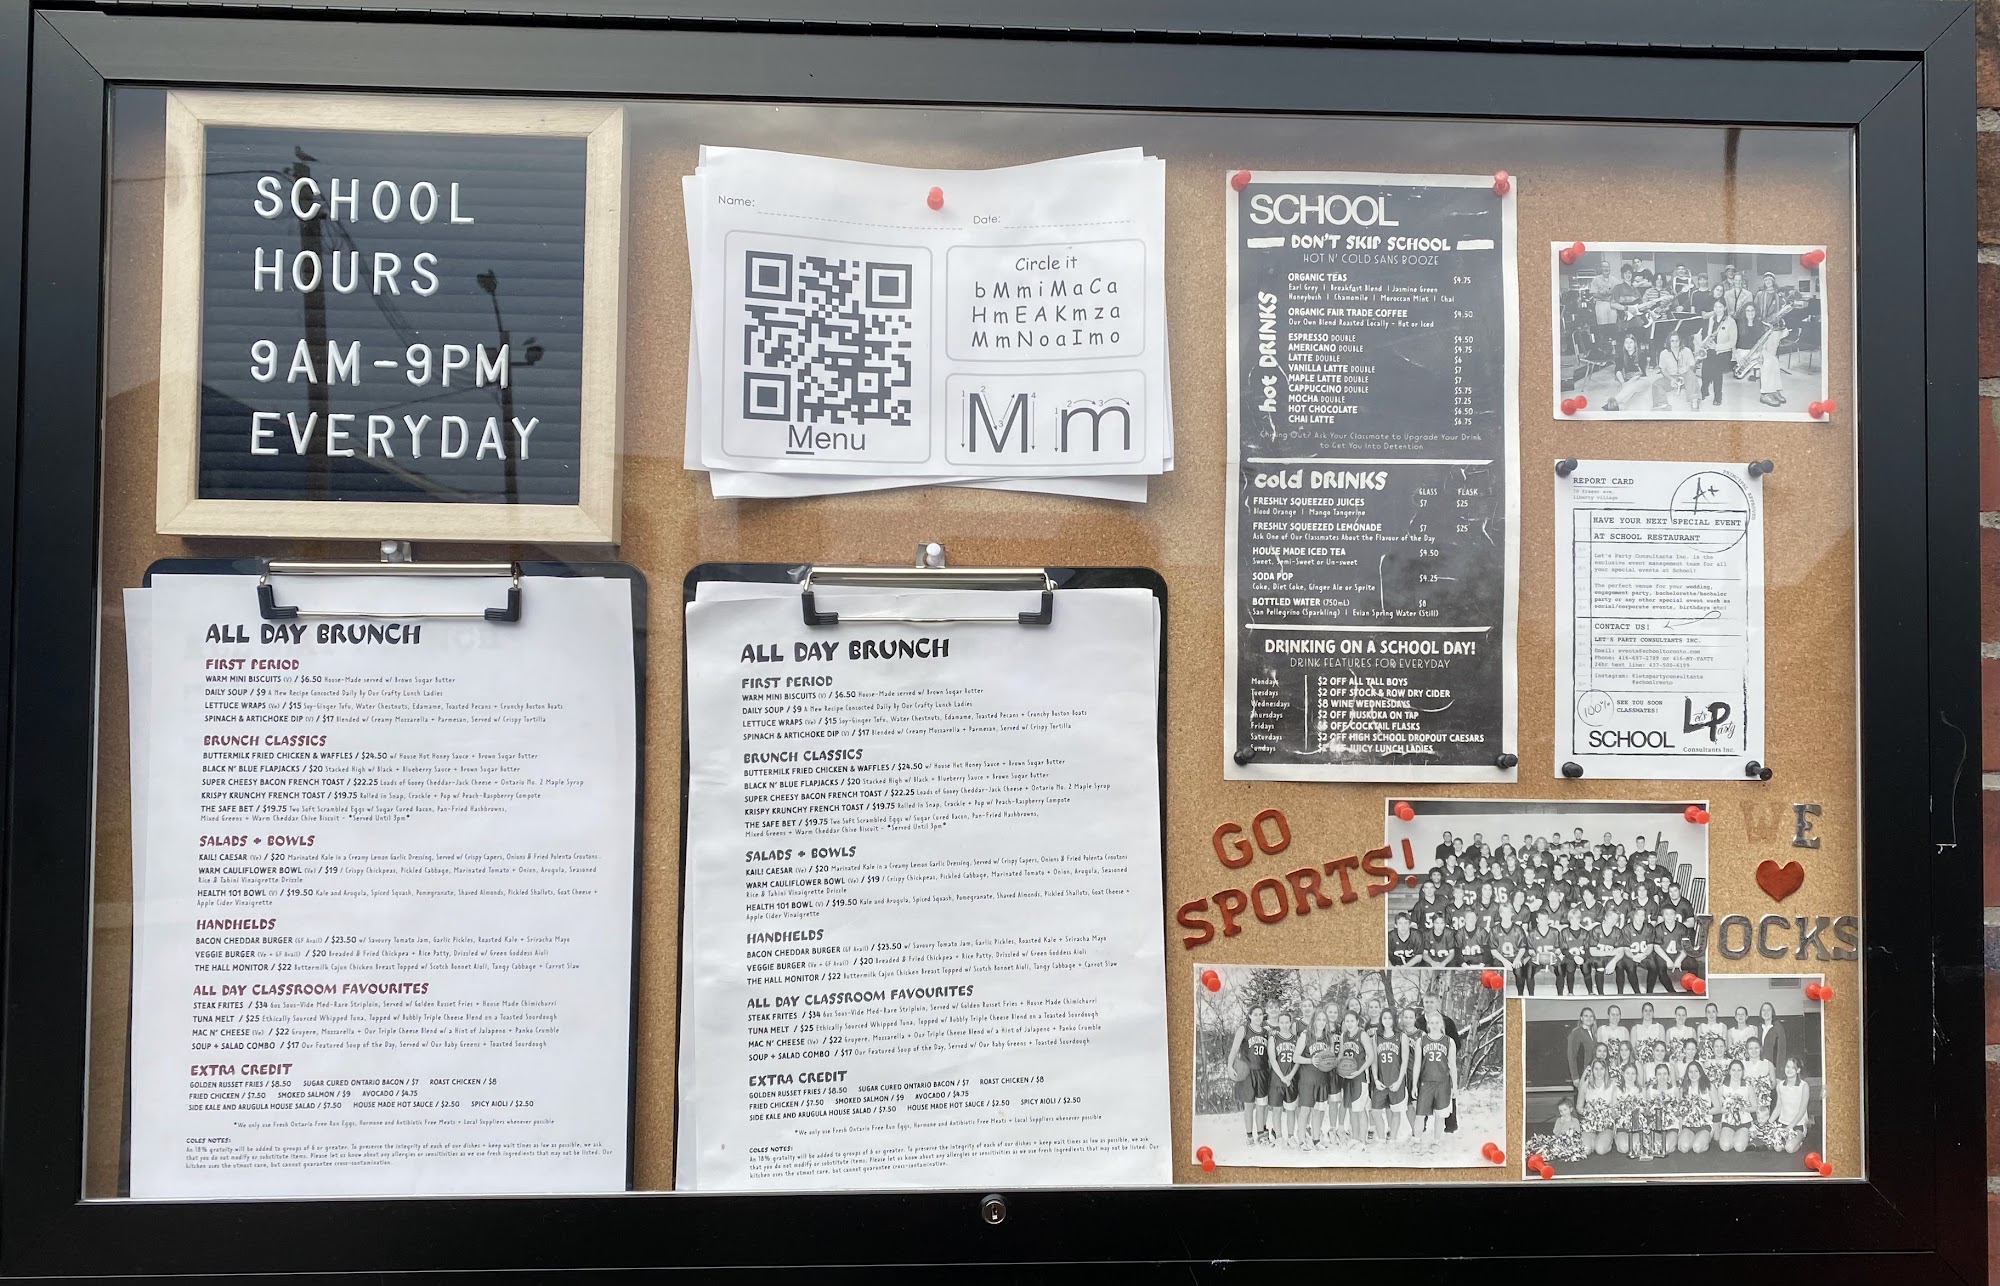 SCHOOL
HOURS
9AM-9PM
EVERYDAY
Name:
Date:
Menu
Circle it
b M m i M a C a
H m E A K m z a
M m N o a I m o
M m
ALL DAY BRUNCH
FIRST PERIOD
WARM MINI BISCUITS (V) / $6.50 House-Made served w/ Brown Sugar Butter
DAILY SOUP / $9 A New Recipe Concocted Daily By Our Crafty Lunch Ladies
LETTUCE WRAPS (Ve) / $15 Soy-Ginger Tofu, Water Chestnuts, Edamame, Toasted Pecans + Crunchy Boston Boats
SPINACH & ARTICHOKE DIP (V) / $17 Blended w/ Creamy Mozzarella + Parmesan, Served w/ Crispy Tortilla
BRUNCH CLASSICS
BUTTERMILK FRIED CHICKEN & WAFFLES / $24.50 w/ House Hot Honey Sauce + Brown Sugar Butter
BLACK N' BLUE FLAPJACKS / $20 Stacked High w/ Black + Blueberry Sauce + Brown Sugar Butter
SUPER CHEESY BACON FRENCH TOAST / $22.25 Loads of Gooey Cheddar-Jack Cheese + Ontario No. 2 Maple Syrup
KRISPY KRUNCHY FRENCH TOAST / $19.75 Rolled in Snap, Crackle + Pop w/ Peach-Raspberry Compote
THE SAFE BET / $19.75 Two Soft Scrambled Eggs w/ Sugar Cured Bacon, Pan-Fried Hashbrowns,
Mixed Greens + Warm Cheddar Chive Biscuit - *Served Until 3pm*
SALADS + BOWLS
KAILI CAESAR (Ve) / $20 Marinated Kale in a Creamy Lemon Garlic Dressing, Served w/ Crispy Capers, Onions & Fried Polenta Croutons
WARM CAULIFLOWER BOWL (Ve) / $19 / Crispy Chickpeas, Pickled Cabbage, Marinated Tomato + Onion, Arugula, Seasoned
Rice & Tahini Vinaigrette Drizzle
HEALTH 101 BOWL (V) / $19.50 Kale and Arugula, Spiced Squash, Pomegranate, Shaved Almonds, Pickled Shallots, Goat Cheese +
Apple Cider Vinaigrette
HANDHELDS
BACON CHEDDAR BURGER (GF Avail) / $23.50 w/ Savoury Tomato Jam, Garlic Pickles, Roasted Kale + Sriracha Mayo
VEGGIE BURGER (Ve + GF Avail) / $20 Breaded & Fried Chickpea + Rice Patty, Drizzled w/ Green Goddess Aioli
THE HALL MONITOR / $22 Buttermilk Cajun Chicken Breast Topped w/ Scotch Bonnet Aioli, Tangy Cabbage + Carrot Slaw
ALL DAY CLASSROOM FAVOURITES
STEAK FRITES / $34 6oz Sous-Vide Med-Rare Striploin, Served w/ Golden Russet Fries + House Made Chimichurri
TUNA MELT / $25 Ethically Sourced Whipped Tuna, Topped w/ Bubbly Triple Cheese Blend on a Toasted Sourdough
MAC N' CHEESE (Ve) / $22 Gruyere, Mozzarella + Our Triple Cheese Blend w/ a Hint of Jalapeno + Panko Crumble
SOUP + SALAD COMBO / $17 Our Featured Soup of the Day, Served w/ Our Baby Greens + Toasted Sourdough
EXTRA CREDIT
GOLDEN RUSSET FRIES / $8.50 SUGAR CURED ONTARIO BACON / $7 ROAST CHICKEN / $8
FRIED CHICKEN / $7.50 SMOKED SALMON / $9 AVOCADO / $4.75
SIDE KALE AND ARUGULA HOUSE SALAD / $7.50 HOUSE MADE HOT SAUCE / $2.50 SPICY AIOLI / $2.50
*We only use Fresh Ontario Free Run Eggs, Hormone and Antibiotic Free Meats + Local Suppliers whenever possible
COLES NOTES:
An 18% gratuity will be added to groups of 6 or greater. To preserve the integrity of each of our dishes + keep wait times as low as possible, we ask
that you do not modify or substitute items. Please let us know about any allergies or sensitivities as we use fresh ingredients that may not be listed. Our
kitchen uses the utmost care, but cannot guarantee cross-contamination.
ALL DAY BRUNCH
FIRST PERIOD
WARM MINI BISCUITS (V) / $6.50 House-Made served w/ Brown Sugar Butter
DAILY SOUP / $9 A New Recipe Concocted Daily By Our Crafty Lunch Ladies
LETTUCE WRAPS (Ve) / $15 Soy-Ginger Tofu, Water Chestnuts, Edamame, Toasted Pecans + Crunchy Boston Boats
SPINACH & ARTICHOKE DIP (V) / $17 Blended w/ Creamy Mozzarella + Parmesan, Served w/ Crispy Tortilla
BRUNCH CLASSICS
BUTTERMILK FRIED CHICKEN & WAFFLES / $24.50 w/ House Hot Honey Sauce + Brown Sugar Butter
BLACK N' BLUE FLAPJACKS / $20 Stacked High w/ Black + Blueberry Sauce + Brown Sugar Butter
SUPER CHEESY BACON FRENCH TOAST / $22.25 Loads of Gooey Cheddar-Jack Cheese + Ontario No. 2 Maple Syrup
KRISPY KRUNCHY FRENCH TOAST / $19.75 Rolled in Snap, Crackle + Pop w/ Peach-Raspberry Compote
THE SAFE BET / $19.75 Two Soft Scrambled Eggs w/ Sugar Cured Bacon, Pan-Fried Hashbrowns,
Mixed Greens + Warm Cheddar Chive Biscuit - *Served Until 3pm*
SALADS + BOWLS
KAILI CAESAR (Ve) / $20 Marinated Kale in a Creamy Lemon Garlic Dressing, Served w/ Crispy Capers, Onions & Fried Polenta Croutons
WARM CAULIFLOWER BOWL (Ve) / $19 / Crispy Chickpeas, Pickled Cabbage, Marinated Tomato + Onion, Arugula, Seasoned
Rice & Tahini Vinaigrette Drizzle
HEALTH 101 BOWL (V) / $19.50 Kale and Arugula, Spiced Squash, Pomegranate, Shaved Almonds, Pickled Shallots, Goat Cheese +
Apple Cider Vinaigrette
HANDHELDS
BACON CHEDDAR BURGER (GF Avail) / $23.50 w/ Savoury Tomato Jam, Garlic Pickles, Roasted Kale + Sriracha Mayo
VEGGIE BURGER (Ve + GF Avail) / $20 Breaded & Fried Chickpea + Rice Patty, Drizzled w/ Green Goddess Aioli
THE HALL MONITOR / $22 Buttermilk Cajun Chicken Breast Topped w/ Scotch Bonnet Aioli, Tangy Cabbage + Carrot Slaw
ALL DAY CLASSROOM FAVOURITES
STEAK FRITES / $34 6oz Sous-Vide Med-Rare Striploin, Served w/ Golden Russet Fries + House Made Chimichurri
TUNA MELT / $25 Ethically Sourced Whipped Tuna, Topped w/ Bubbly Triple Cheese Blend on a Toasted Sourdough
MAC N' CHEESE (Ve) / $22 Gruyere, Mozzarella + Our Triple Cheese Blend w/ a Hint of Jalapeno + Panko Crumble
SOUP + SALAD COMBO / $17 Our Featured Soup of the Day, Served w/ Our Baby Greens + Toasted Sourdough
EXTRA CREDIT
GOLDEN RUSSET FRIES / $8.50 SUGAR CURED ONTARIO BACON / $7 ROAST CHICKEN / $8
FRIED CHICKEN / $7.50 SMOKED SALMON / $9 AVOCADO / $4.75
SIDE KALE AND ARUGULA HOUSE SALAD / $7.50 HOUSE MADE HOT SAUCE / $2.50 SPICY AIOLI / $2.50
*We only use Fresh Ontario Free Run Eggs, Hormone and Antibiotic Free Meats + Local Suppliers whenever possible
COLES NOTES:
An 18% gratuity will be added to groups of 6 or greater. To preserve the integrity of each of our dishes + keep wait times as low as possible, we ask
that you do not modify or substitute items. Please let us know about any allergies or sensitivities as we use fresh ingredients that may not be listed. Our
kitchen uses the utmost care, but cannot guarantee cross-contamination.
SCHOOL
DON'T SKIP SCHOOL
HOT N' COLD SANS BOOZE
hot DRINKS
ORGANIC TEAS $4.75
Earl Grey | Breakfast Blend | Jasmine Green
Honeybush | Chamomile | Moroccan Mint | Chai
ORGANIC FAIR TRADE COFFEE $4.50
Our Own Blend Roasted Locally - Hot or Iced
ESPRESSO DOUBLE $4.50
AMERICANO DOUBLE $4.75
LATTE DOUBLE $6
VANILLA LATTE DOUBLE $7
MAPLE LATTE DOUBLE $7
CAPPUCCINO DOUBLE $5.75
MOCHA DOUBLE $7.25
HOT CHOCOLATE $6.50
CHAI LATTE $6.75
Chilling Out? Ask Your Classmate to Upgrade Your Drink
to Get You Into Detention
cold DRINKS
GLASS FLASK
FRESHLY SQUEEZED JUICES $7 $25
Blood Orange | Mango Tangerine
FRESHLY SQUEEZED LEMONADE $7 $25
Ask One of Our Classmates About the Flavour of the Day
HOUSE MADE ICED TEA $4.50
Sweet, Semi-Sweet or Un-sweet
SODA POP $4.25
Coke, Diet Coke, Ginger Ale or Sprite
BOTTLED WATER (750mL) $8
San Pellegrino (Sparkling) | Evian Spring Water (Still)
DRINKING ON A SCHOOL DAY!
DRINK FEATURES FOR EVERYDAY
Mondays $2 OFF ALL TALL BOYS
Tuesdays $2 OFF STOCK & ROW DRY CIDER
Wednesdays $8 WINE WEDNESDAYS
Thursdays $2 OFF MUSKOKA ON TAP
Fridays OFF COCKTAIL FLASKS
Saturdays $2 OFF HIGH SCHOOL DROPOUT CAESARS
Sundays OFF JUICY LUNCH LADIES
REPORT CARD
70 fraser ave.
liberty village
A+
PRINCIPAL APPROVED
HAVE YOUR NEXT SPECIAL EVENT
AT SCHOOL RESTAURANT
Let's Party Consultants Inc. is the
exclusive event management team for all
your special events at School!
The perfect venue for your wedding,
engagement party, bachelorette/bachelor
party or any other special event such as
social/corporate events, birthdays etc!
CONTACT US!
LET'S PARTY CONSULTANTS INC.
Email: events@schooltoronto.com
Phone: 416-697-2789 or 416-MY-PARTY
24hr text line: 437-500-6199
Instagram: @letspartyconsultants
@schooltoronto
100%
SEE YOU SOON
CLASSMATES!
SCHOOL
Let's Party
Consultants Inc.
GO
SPORTS!
WE
JOCKS
BRONCOS
30
25
35
BRONCOS
32